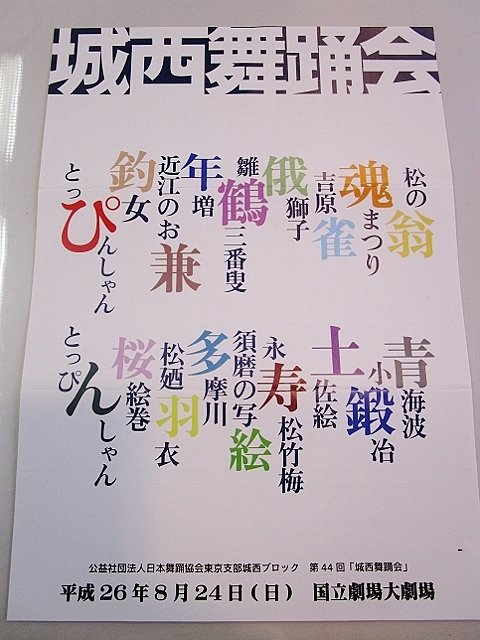 城西舞踊会
松の翁
魂まつり
吉原雀
俄獅子
雛鶴三番叟
年増
近江のお兼
釣女
とっぴんしゃん
青海波
小鍛冶
土佐絵
永寿松竹梅
須磨の写絵
多摩川
松廼羽衣
桜絵巻
とっぴんしゃん
公益社団法人日本舞踊協会東京支部城西ブロック　第44回「城西舞踊会」
平成26年8月24日(日)　国立劇場大劇場